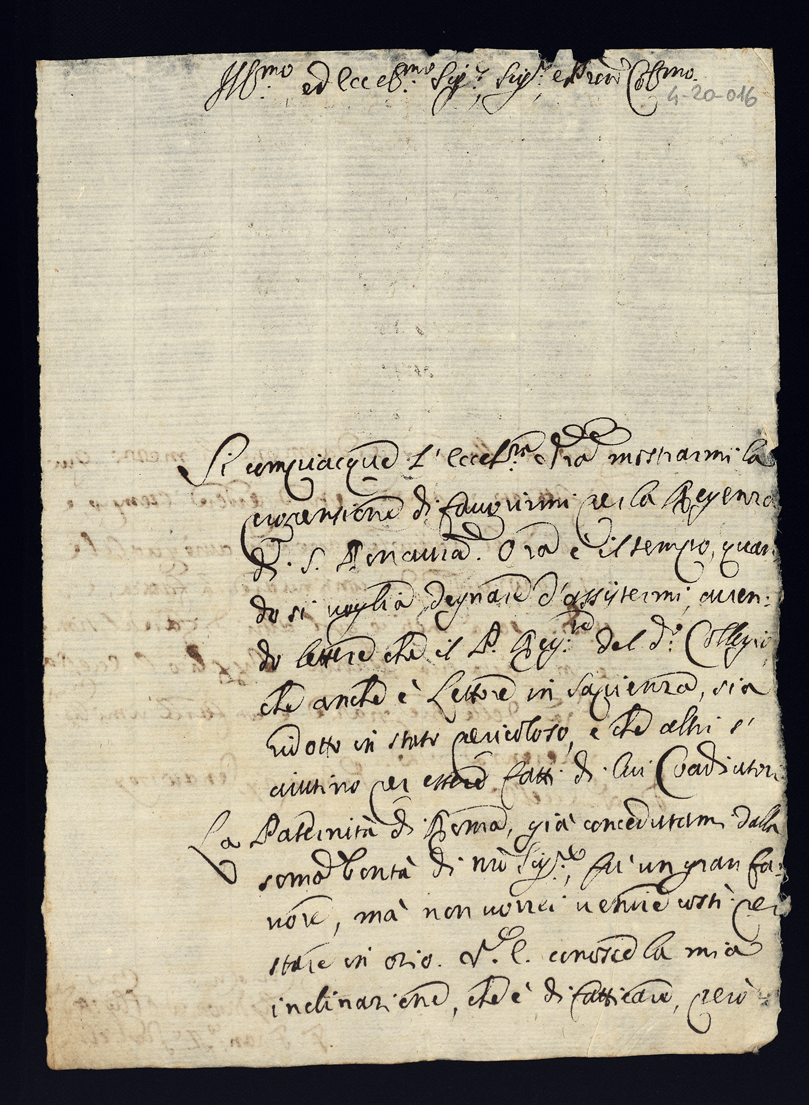 Ill.mo ed Ecce.mo Sig.r, Sig.r e Pron Col.mo
4-20-016
Si compiacque l'Ecc.za Vra mostrarmi la
propensione di favorirmi per la Regenza
di S. Bonavra. Ora è il tempo, quan
do si voglia degnare d'assistermi, aven:
do lettere che il P. Reg.te del d.o Collegio,
che anche è Lettore in Sapienza, sia
ridotto in stato pericoloso, e che altri s'
aiutino per essere fatti di lui Coadiutori
La Paternità di Roma, già concedutami dalla
soma bontà di nro Sig.re, fù un gran fa:
vore, mà non vorrei venire costì per
stare in ozio. V. E. conosce la mia
inclinazione, che è di fatticare, però